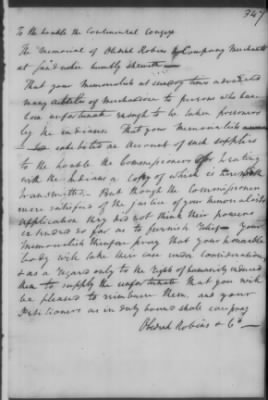 347
To the honble the Continental Congress
The Memorial of Obediah Robins & Company Merchants
at humbly Sheweth
That your Memorialists at sundry times advanced
many articles of Merchandise to persons who have
been unfortunate enough to be taken prisoners
by the indians That your Memorialists
exhibited an Account of such supplies
to the honble the Commissioners for treating
with the indians a Copy of which is herewith
transmitted. But though the Commissioners
were satisfied of the justice of your memorialists
application they did not think their powers
extended so far as to furnish relief Your
Memorialists therefore pray that your honorable
body will take their case under Consideration
& as a regard only to the rights of humanity induced
them to supply the unfortunate that you will
be pleased to reimburse them, and your
Petitioners as in duty bound shall ever pray
Robins & Co